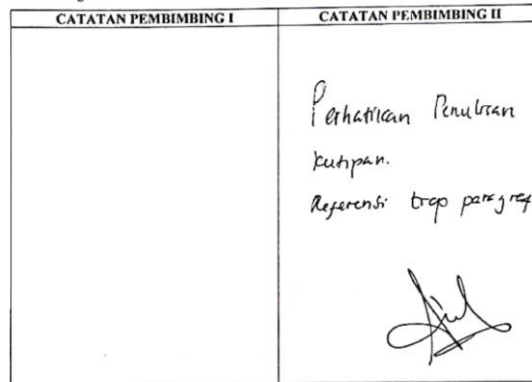 CATATAN PEMBIMBING I
CATATAN PEMBIMBING II
Perhatikan Penulisan
kutipan.
Referensi trap paragraf